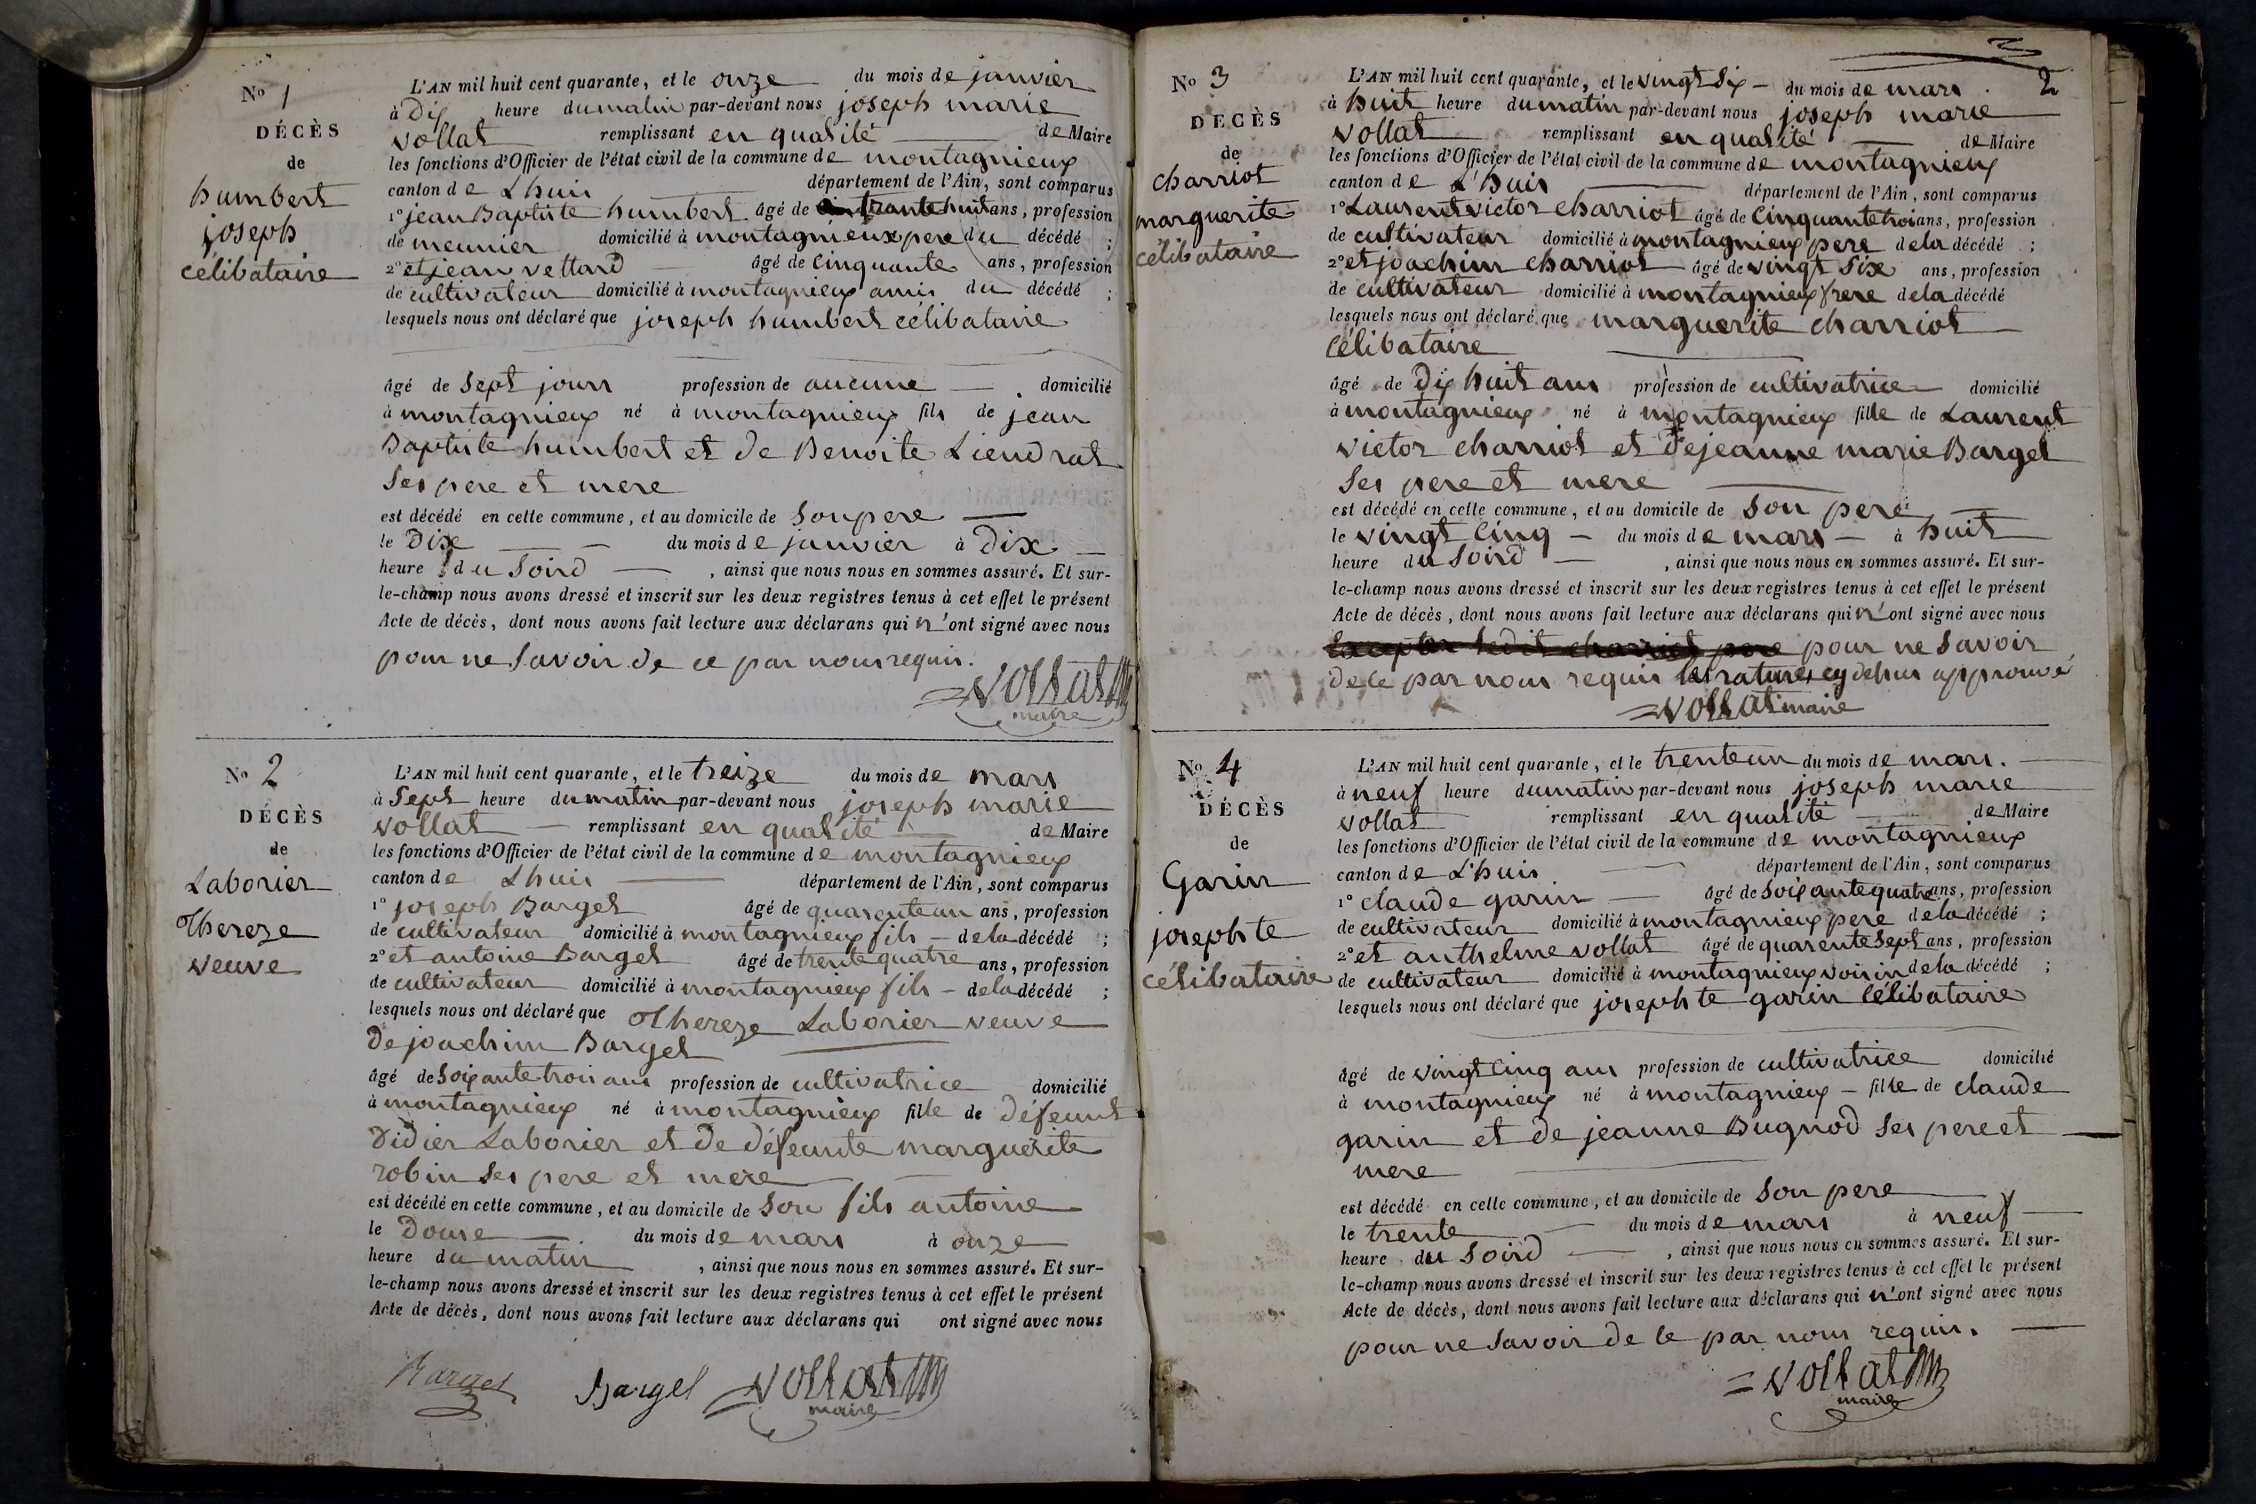 No 1
DÉCÈS
de
humbert
joseph
célibataire
L'AN mil huit cent quarante, et le onze du mois de janvier
à Dix heure du matin par-devant nous joseph marie
vollat remplissant en qualité de Maire
les fonctions d'Officier de l'état civil de la commune de montagnieux
canton de Lhuis département de l'Ain, sont comparus
1° jean Baptiste humbert âgé de trante huit ans, profession
de meunier domicilié à montagnieux pere du décédé ;
2° et jean vettard âgé de cinquante ans, profession
de cultivateur domicilié à montagnieux amis du décédé ;
lesquels nous ont déclaré que joseph humbert célibataire
âgé de sept jours profession de aucune domicilié
à montagnieux né à montagnieux fils de jean
Baptiste humbert et de Benoite Liendrat
ses pere et mere
est décédé en cette commune, et au domicile de son pere
le Dix du mois de janvier à Dix
heure du soird , ainsi que nous nous en sommes assuré. Et sur-
le-champ nous avons dressé et inscrit sur les deux registres tenus à cet effet le présent
Acte de décès, dont nous avons fait lecture aux déclarans qui n'ont signé avec nous
pour ne savoir de ce par nous requis.
vollat
maire
No 2
DÉCÈS
de
Laborier
Thereze
veuve
L'AN mil huit cent quarante, et le treize du mois de mars
à sept heure du matin par-devant nous joseph marie
vollat remplissant en qualité de Maire
les fonctions d'Officier de l'état civil de la commune de montagnieux
canton de Lhuis département de l'Ain, sont comparus
1° joseph Barget âgé de quarente un ans, profession
de cultivateur domicilié à montagnieux fils de la décédé ;
2° et antoine Barget âgé de trente quatre ans, profession
de cultivateur domicilié à montagnieux fils de la décédé ;
lesquels nous ont déclaré que Thereze Laborier veuve
De joachim Barget
âgé de soixante trois ans profession de cultivatrice domicilié
à montagnieux né à montagnieux fille de défeunt
Didier Laborier et de défeunte marguerite
robin ses pere et mere
est décédé en cette commune, et au domicile de son fils antoine
le Douse du mois de mars à onze
heure du matin , ainsi que nous nous en sommes assuré. Et sur-
le-champ nous avons dressé et inscrit sur les deux registres tenus à cet effet le présent
Acte de décès, dont nous avons fait lecture aux déclarans qui ont signé avec nous
Barget Bargel vollat
maire
2
No 3
DÉCÈS
de
charriot
marguerite
célibataire
L'AN mil huit cent quarante, et le vingt six du mois de mars
à huit heure du matin par-devant nous joseph marie
vollat remplissant en qualité de Maire
les fonctions d'Officier de l'état civil de la commune de montagnieux
canton de L'huis département de l'Ain, sont comparus
1° Laurent victor charriot âgé de cinquante trois ans, profession
de cultivateur domicilié à montagnieux pere de la décédé ;
2° et joachim charriot âgé de vingt six ans, profession
de cultivateur domicilié à montagnieux frere de la décédé
lesquels nous ont déclaré que marguerite charriot
célibataire
âgé de Dix huit ans profession de cultivatrice domicilié
à montagnieux né à montagnieux fille de Laurent
victor charriot et De jeanne marie Barget
ses pere et mere
est décédé en cette commune, et au domicile de son pere
le vingt cinq du mois de mars à huit
heure du soird , ainsi que nous nous en sommes assuré. Et sur-
le-champ nous avons dressé et inscrit sur les deux registres tenus à cet effet le présent
Acte de décès, dont nous avons fait lecture aux déclarans qui n'ont signé avec nous
excepter ledit charriot pere pour ne savoir
de ce par nous requis les ratures cy dessus approuvé
vollat maire
No 4
DÉCÈS
de
Garin
josephte
célibataire
L'AN mil huit cent quarante, et le trente un du mois de mars.
à neuf heure du matin par-devant nous joseph marie
vollat remplissant en qualité de Maire
les fonctions d'Officier de l'état civil de la commune de montagnieux
canton de L'huis département de l'Ain, sont comparus
1° claude garin âgé de soixante quatre ans, profession
de cultivateur domicilié à montagnieux pere de la décédé ;
2° et anthelme vollat âgé de quarente sept ans, profession
de cultivateur domicilié à montagnieux voisin de la décédé ;
lesquels nous ont déclaré que josephte garin célibataire
âgé de vingt cinq ans profession de cultivatrice domicilié
à montagnieux né à montagnieux fille de claude
garin et de jeanne Bugnod ses pere et
mere
est décédé en cette commune, et au domicile de son pere
le trente du mois de mars à neuf
heure du soird , ainsi que nous nous en sommes assuré. Et sur-
le-champ nous avons dressé et inscrit sur les deux registres tenus à cet effet le présent
Acte de décès, dont nous avons fait lecture aux déclarans qui n'ont signé avec nous
pour ne savoir de ce par nous requis.
vollat
maire